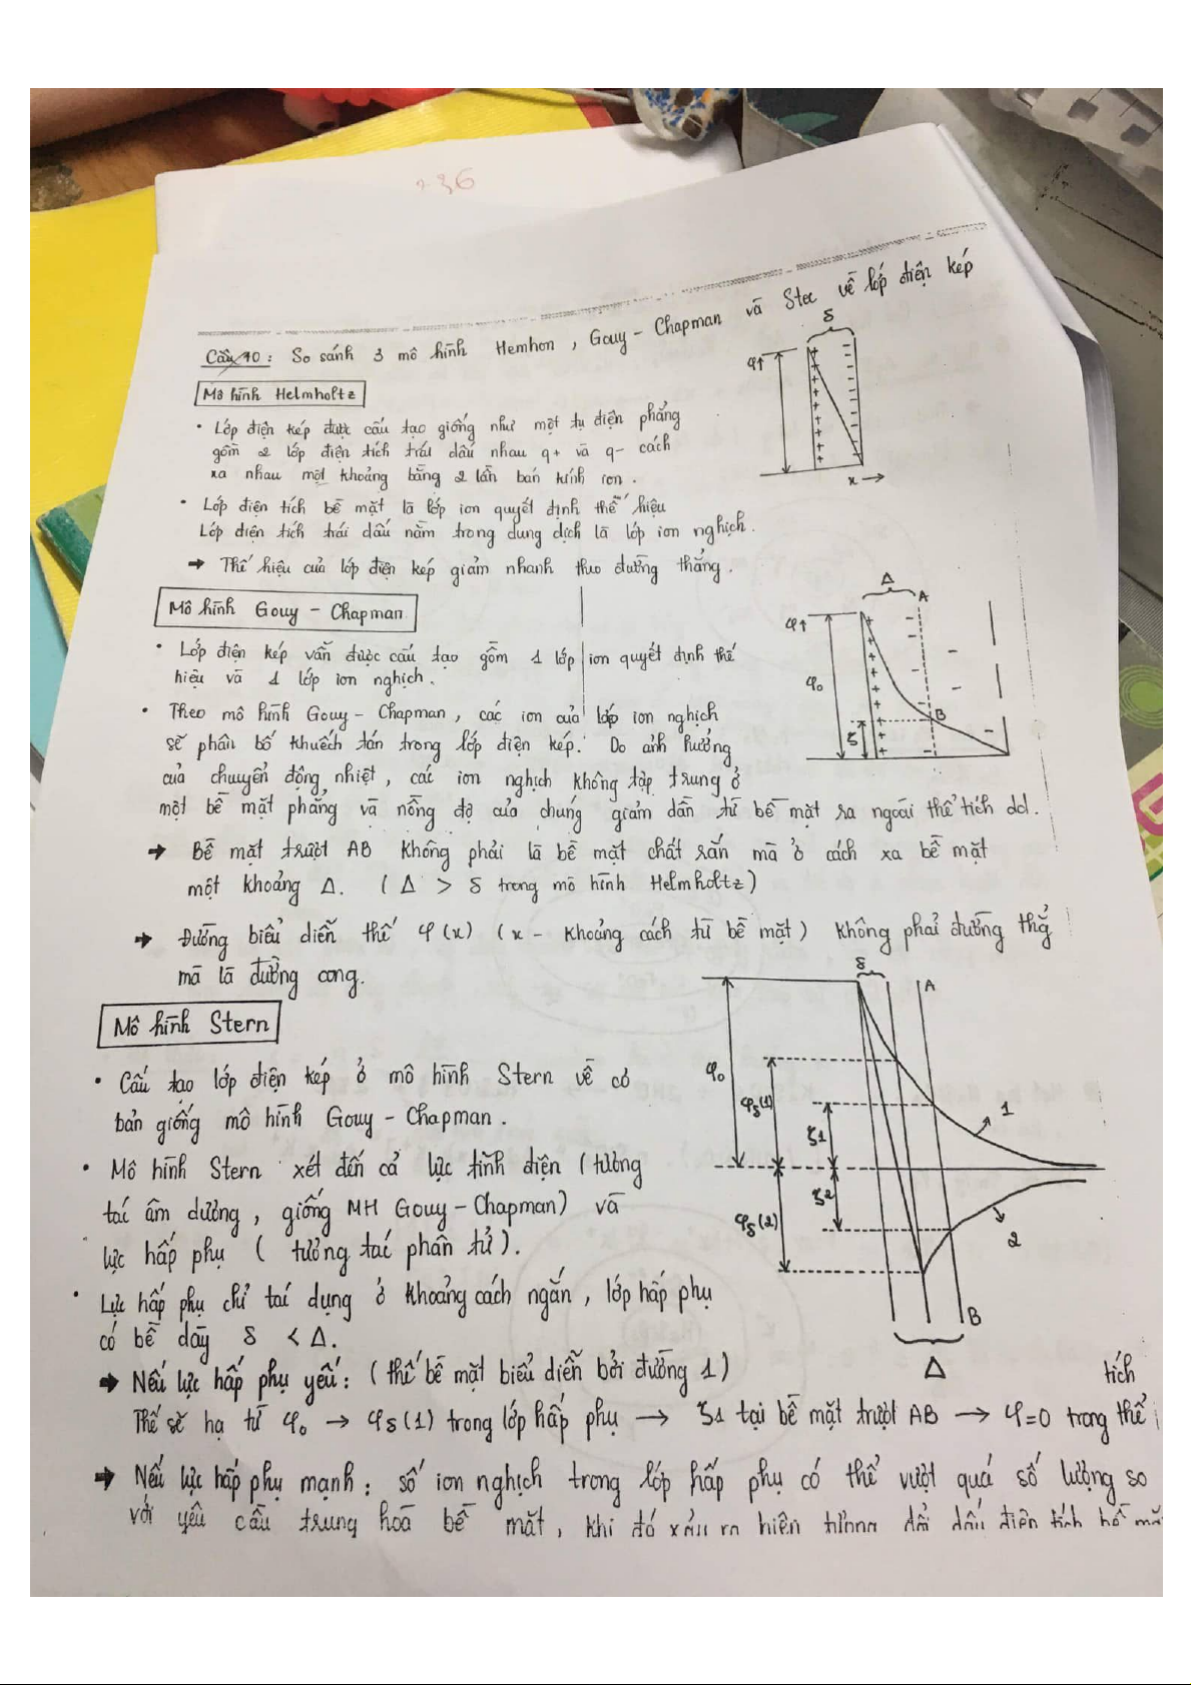 236
Câu 10: So sánh 3 mô hình Hemhon, Gouy - Chapman và Stec về lớp điện kép
Mô hình Helmholtz
• Lớp điện kép được cấu tạo giống như một tụ điện phẳng
gồm 2 lớp điện tích trái dấu nhau q+ và q- cách
xa nhau một khoảng bằng 2 lần bán kính ion.
• Lớp điện tích bề mặt là lớp ion quyết định thế hiệu
Lớp điện tích trái dấu nằm trong dung dịch là lớp ion nghịch.
→ Thế hiệu của lớp điện kép giảm nhanh theo đường thẳng.
δ
φ↑
x →
Mô hình Gouy - Chapman
• Lớp điện kép vẫn được cấu tạo gồm 1 lớp ion quyết định thế
hiệu và 1 lớp ion nghịch.
• Theo mô hình Gouy - Chapman, các ion của lớp ion nghịch
sẽ phân bố khuếch tán trong lớp điện kép. Do ảnh hưởng
của chuyển động nhiệt, các ion nghịch không tập trung ở
một bề mặt phẳng và nồng độ của chúng giảm dần từ bề mặt ra ngoài thể tích dd.
→ Bề mặt trượt AB không phải là bề mặt chất rắn mà ở cách xa bề mặt
một khoảng Δ. ( Δ > δ trong mô hình Helmholtz)
→ Đường biểu diễn thế φ(x) (x - khoảng cách từ bề mặt) không phải đường thẳ
mà là đường cong.
Δ
A
φ↑
φ₀
B
ξ
Mô hình Stern
• Cấu tạo lớp điện kép ở mô hình Stern về cơ
bản giống mô hình Gouy - Chapman.
• Mô hình Stern xét đến cả lực tĩnh điện (tương
tác âm dương, giống MH Gouy - Chapman) và
lực hấp phụ ( tương tác phân tử).
• Lực hấp phụ chỉ tác dụng ở khoảng cách ngắn, lớp hấp phụ
có bề dày δ < Δ.
δ
A
φ₀
φδ(1)
ξ1
1
ξ2
φδ(2)
2
B
Δ
→ Nếu lực hấp phụ yếu: (thế bề mặt biểu diễn bởi đường 1)
tích
Thế sẽ hạ từ φ₀ → φδ(1) trong lớp hấp phụ → ξ1 tại bề mặt trượt AB → φ=0 trong thể
→ Nếu lực hấp phụ mạnh: số ion nghịch trong lớp hấp phụ có thể vượt quá số lượng so
với yêu cầu trung hoà bề mặt, khi đó xảy ra hiện tượng đổi dấu điện tích bề mặ